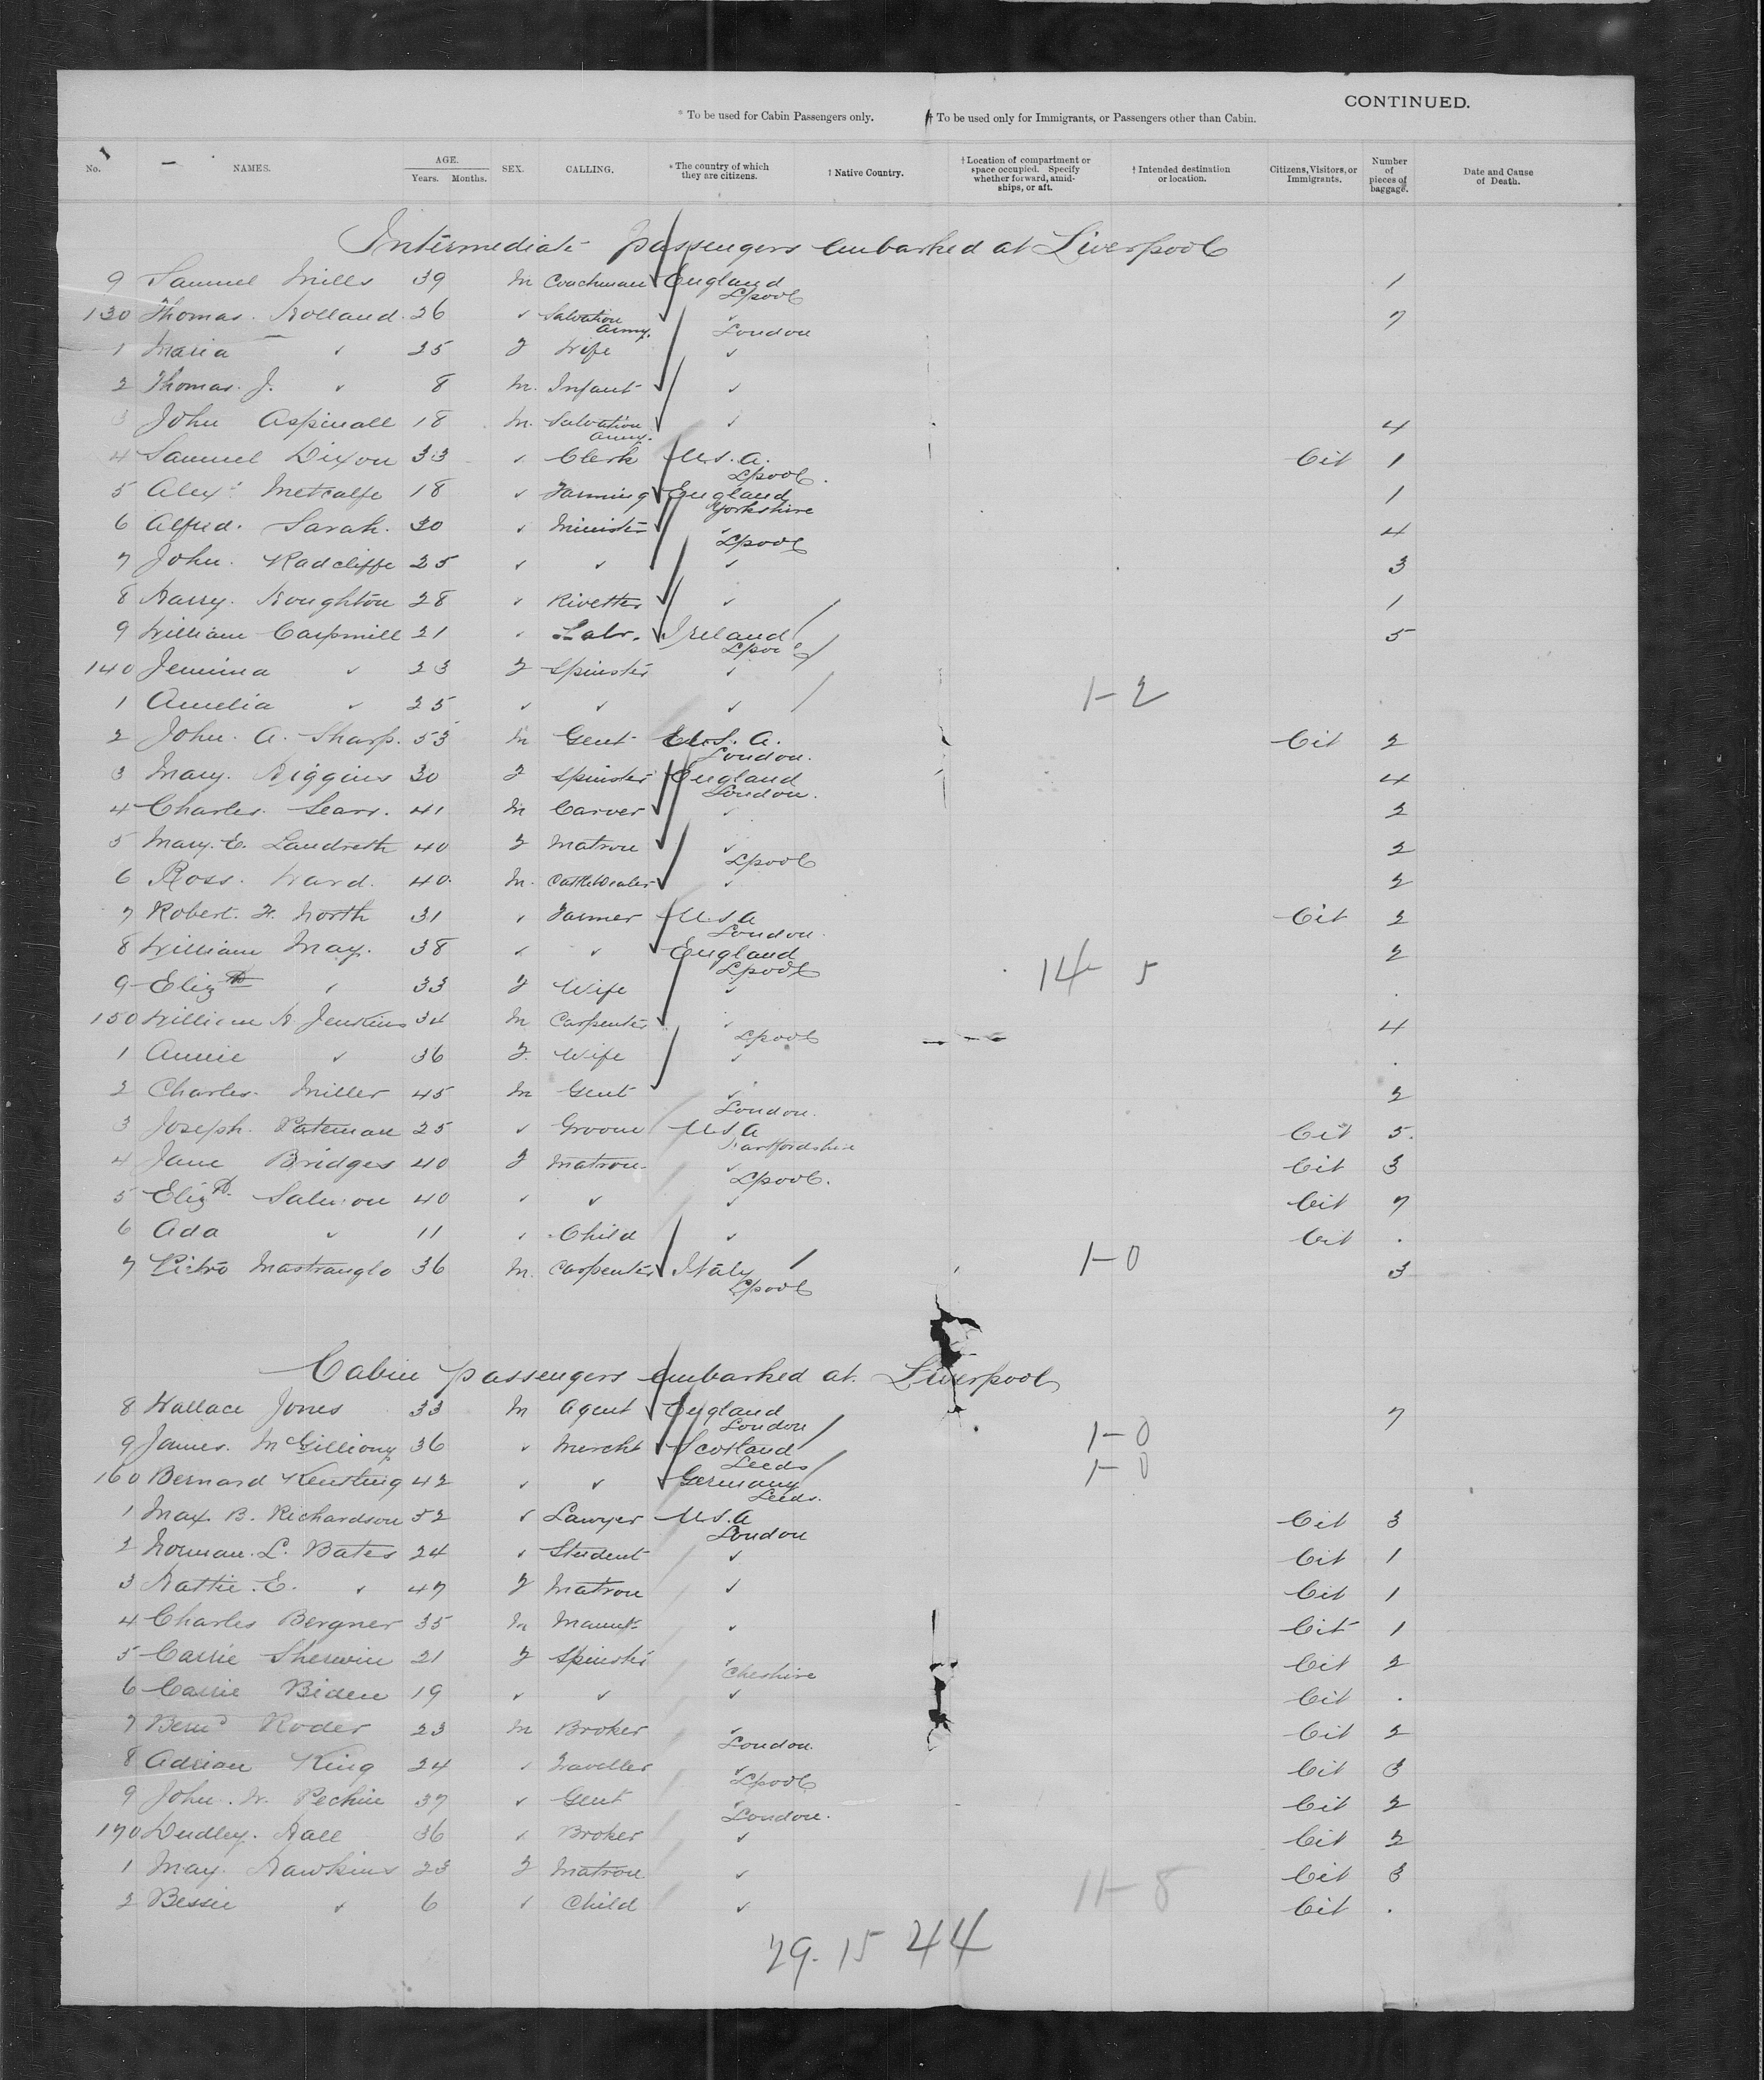 CONTINUED.
* To be used for Cabin Passengers only. † To be used only for Immigrants, or Passengers other than Cabin.
No. NAMES. AGE. Years. Months. SEX. CALLING. * The country of which they are citizens. † Native Country. † Location of compartment or space occupied. Specify whether forward, amidships, or aft. † Intended destination or location. Citizens, Visitors, or Immigrants. Number of pieces of baggage. Date and Cause of Death.
Intermediate passengers embarked at Liverpool
9 Samuel Mills 39 M Coachman England 1
Lpool
130 Thomas Holland 26 ✓ Salvation Army. ✓ 7
London
1 Maria ✓ 25 F Wife ✓
2 Thomas J. ✓ 8 M. Infant ✓
3 John Aspinall 18 M. Salvation Army. ✓ 4
4 Samuel Dixon 33 ✓ Clerk U.S.A. Cit 1
Lpool.
5 Alexr Metcalfe 18 ✓ Farming England 1
Yorkshire
6 Alfred. Sarah. 30 ✓ Minister ✓ 4
Lpool
7 John. Radcliffe 25 ✓ ✓ ✓ 3
8 Harry. Houghton 28 ✓ Rivetter ✓ 1
9 William Carpmill 21 ✓ Labr. Ireland 5
Lpool
140 Jemima ✓ 23 F Spinster ✓
1 Amelia ✓ 25 ✓ ✓ ✓ 1-2
2 John. A. Sharp. 53 M Gent U.S.A. Cit 2
London.
3 Mary. Higgins 30 F Spinster England 4
London.
4 Charles. Sears. 41 M Carver ✓ 2
5 Mary. E. Landreth 40 F Matron ✓ 2
Lpool
6 Ross. Ward. 40. M. Cattle Dealer ✓ 2
7 Robert. H. North 31 ✓ Farmer U.S.A Cit 2
London.
8 William May. 38 ✓ ✓ England 2
Lpool
9 Elizth ✓ 33 F Wife ✓ 14 5 .
150 William H. Jenkins 34 M Carpenter ✓ 4
Lpool
1 Annie ✓ 36 F. Wife ✓ .
2 Charles. Miller 45 M Gent ✓ 2
London.
3 Joseph. Pateman 25 ✓ Groom U.S.A Cit 5.
Hartfordshire
4 Jane Bridges 40 F Matron. ✓ Cit 3
Lpool.
5 Elizth Salmon 40 ✓ ✓ ✓ Cit 7
6 Ada ✓ 11 ✓ Child ✓ Cit .
7 Pietro Mastranglo 36 M. Carpenter Italy 1-0 3
Lpool
Cabin passengers embarked at Liverpool
8 Wallace Jones 33 M Agent England 7
London
9 James. McGilliony 36 ✓ Mercht Scotland 1-0
Leeds
160 Bernard 42 ✓ ✓ Germany 1-0
Leeds.
1 Max. B. Richardson 52 ✓ Lawyer U.S.A Cit 3
London
2 Norman. L. Bates 24 ✓ Student ✓ Cit 1
3 Hattie. E. ✓ 47 F Matron ✓ Cit 1
4 Charles Bergner 35 M Manuf. ✓ Cit 1
5 Carrie Sherwin 21 F Spinster ✓ Cit 2
Cheshire
6 Carrie Biden 19 ✓ ✓ ✓ Cit .
7 Bernd Roder 23 M Broker ✓ Cit 2
London.
8 Adrian King 24 ✓ Traveller ✓ Cit 3
Lpool
9 John. W. Pechin 37 ✓ Gent ✓ Cit 2
London.
170 Dudley. Hall 36 ✓ Broker ✓ Cit 2
1 May. Hawkins 23 F Matron ✓ Cit 3
2 Bessie ✓ 6 ✓ Child ✓ 11-8 Cit .
29. 15 44